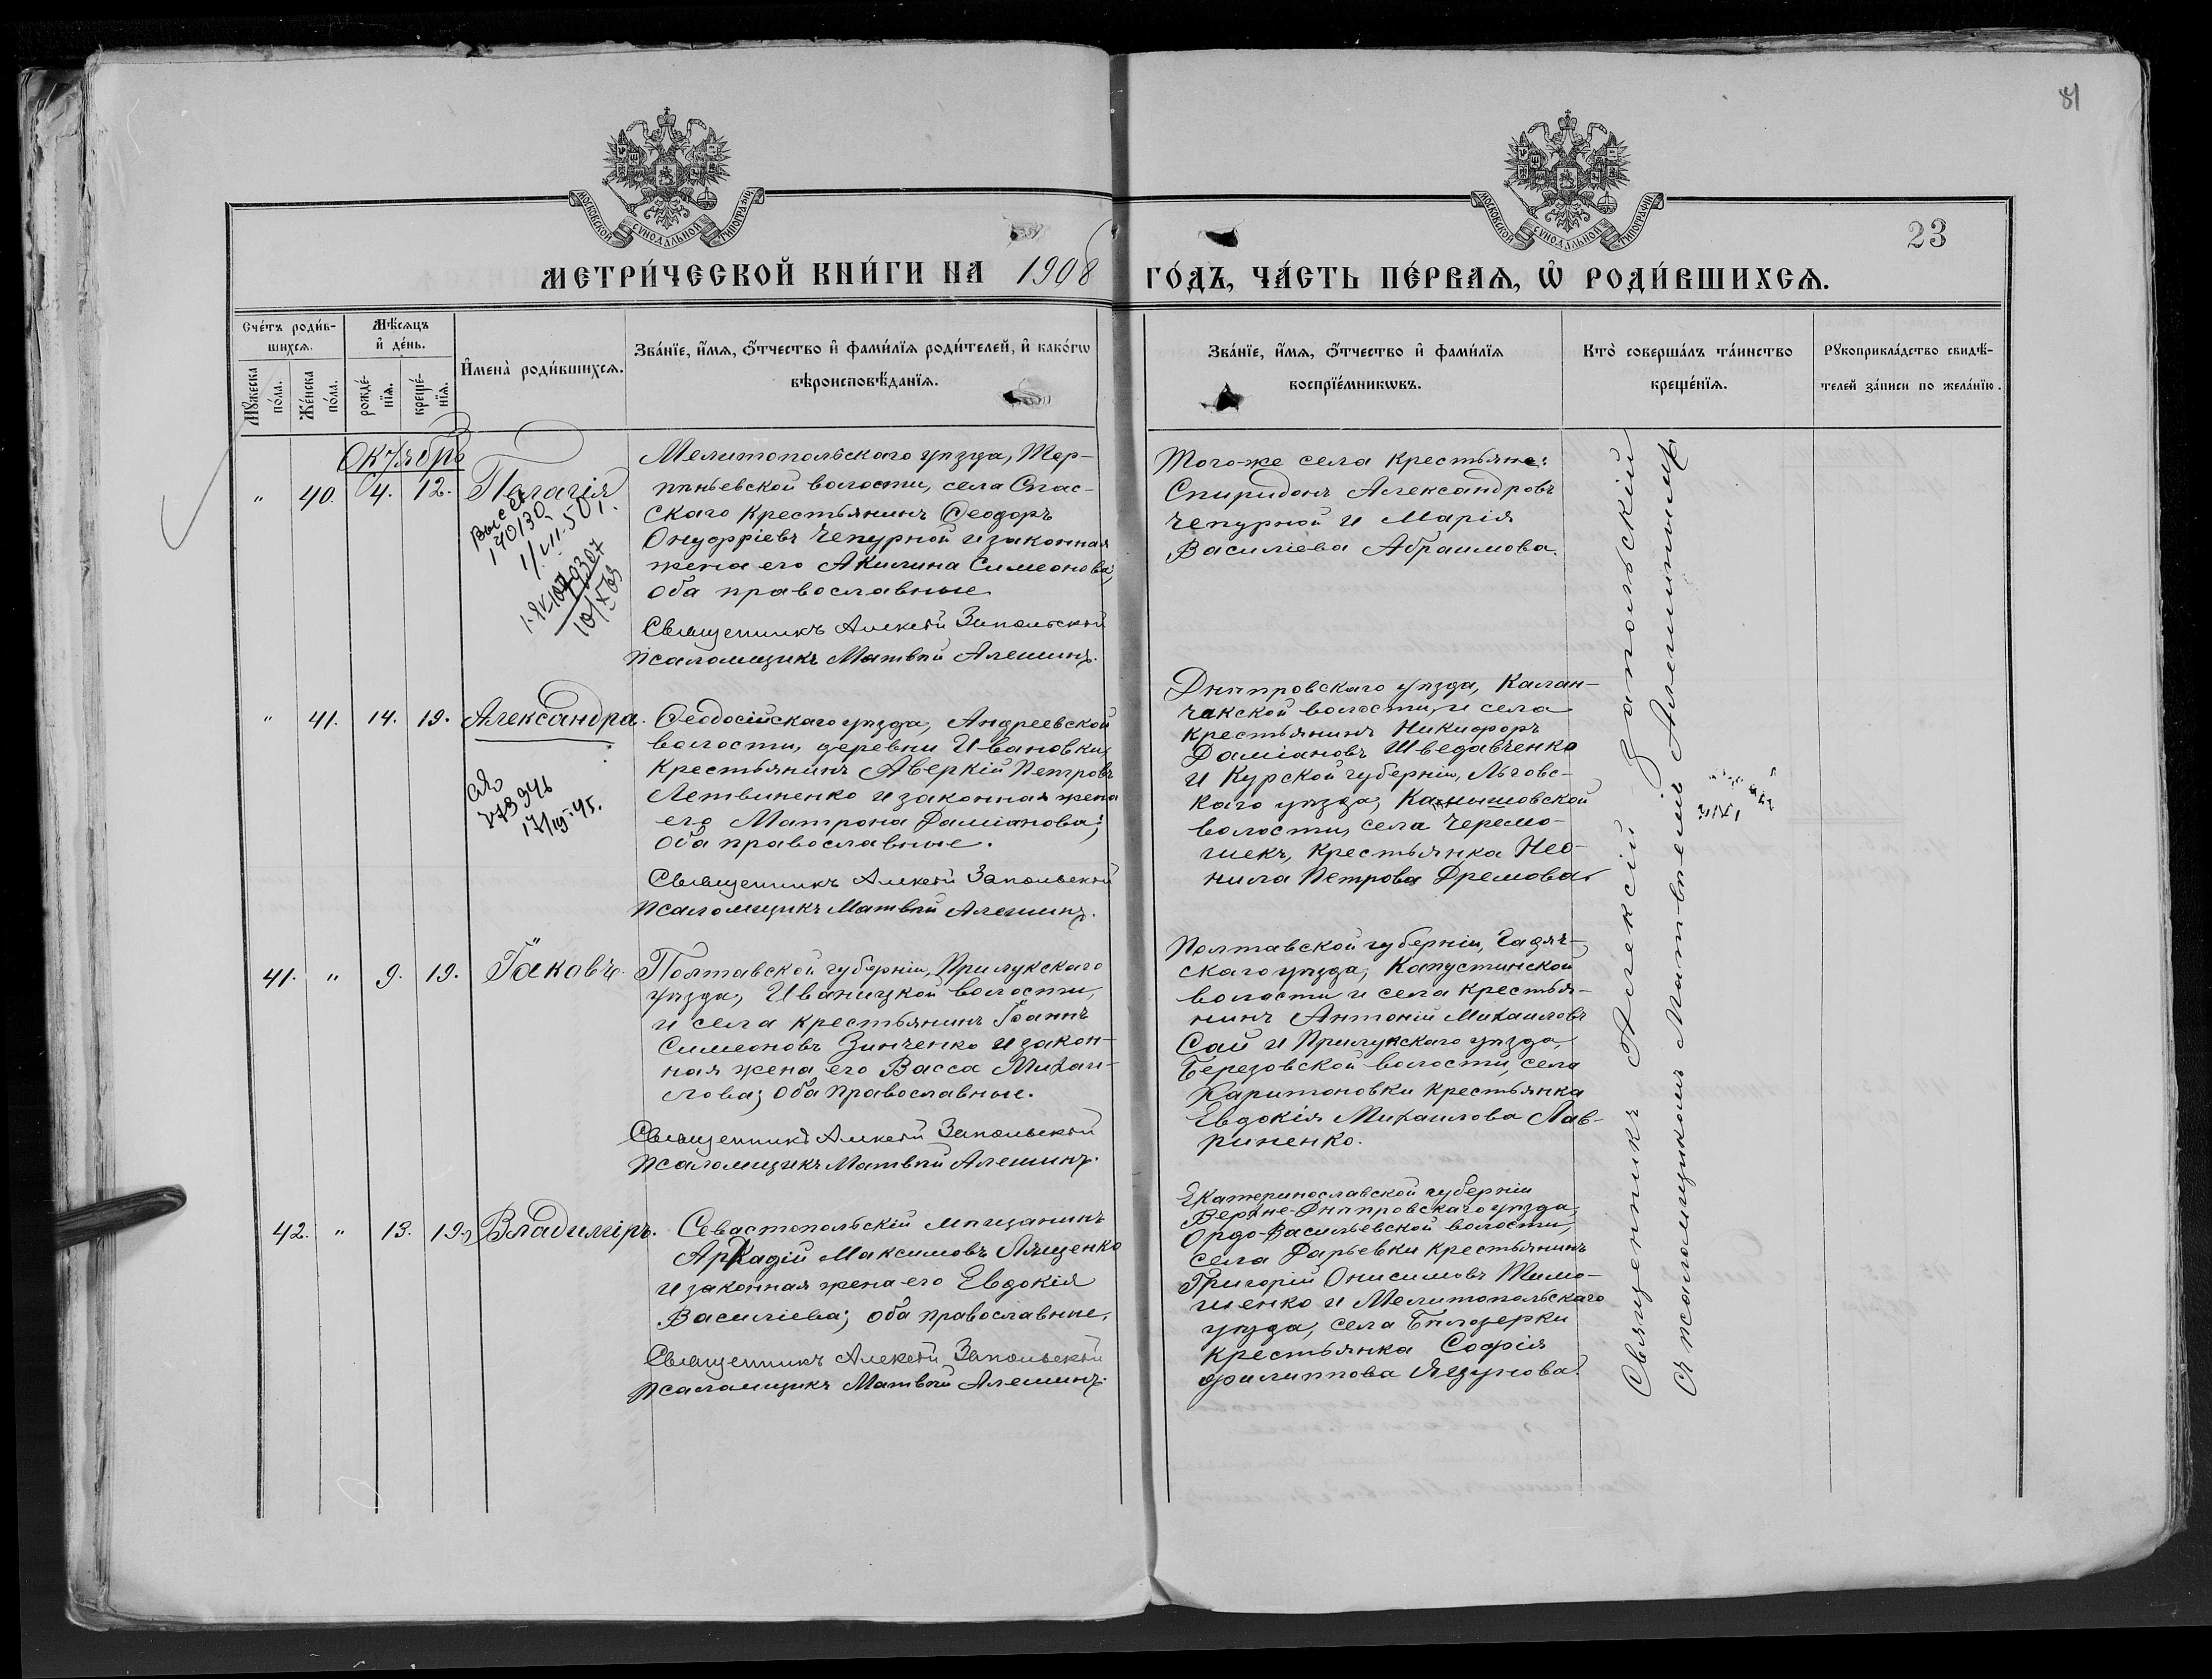 81
23
МОСКОВСКОЙ СУНОДАЛЬНОЙ ТИПОГРАФІИ
МОСКОВСКОЙ СУНОДАЛЬНОЙ ТИПОГРАФІИ
МЕТРИ́ЧЕСКОЙ КНИ́ГИ НА 1908 ГО́ДЪ, ЧА́СТЬ ПЕ́РВАѦ, Ѡ҆ РОДИ́ВШИХСѦ.
Сче́тъ роди́в-
шихсѧ.
Мꙋ́жеска по́ла.
Же́нска по́ла.
Мѣ́сѧцъ
и҆ де́нь.
рожде́-
нїѧ.
креще́-
нїѧ.
И҆мена̀ роди́вшихсѧ.
Зва́нїе, и҆́мѧ, ѻ҆́тчество и҆ фами́лїѧ роди́телей, и҆ како́гѡ
вѣроисповѣ́данїѧ.
Зва́нїе, и҆́мѧ, ѻ҆́тчество и҆ фами́лїѧ
воспрїе́мникѡвъ.
Кто̀ соверша́лъ та́инство
креще́нїѧ.
Рꙋкоприкла́дство свидѣ́-
телей за́писи по жела́нїю.
Октябрь
" 40. 4. 12. Пелагія
140130
Мелитопольскаго уѣзда, Тер-
пѣньевской волости, села Спас-
скаго крестьянинъ Ѳеодоръ
Онуфріевъ Чепурной и законная
жена его Акилина Симеонова,
оба православные
Священникъ Алексѣй Запольскій
Псаломщикъ Матвѣй Алешинъ.
Того-же села крестьяне:
Спиридонъ Александровъ
Чепурной и Марія
Василіева Абраимова.
" 41. 14. 19. Александра.
273946
17/III-45.
Ѳеодосійскаго уѣзда, Андреевской
волости, деревни Ивановки,
крестьянинъ Аверкій Петровъ
Летвиненко и законная жена
его Матрона Даміанова;
оба православные.
Священникъ Алексѣй Запольскій
Псаломщикъ Матвѣй Алешинъ.
Днѣпровскаго уѣзда, Калан-
чакской волости и села
крестьянинъ Никифоръ
Даміановъ Шведавченко
и Курской губерніи, Льговс-
каго уѣзда,
волости, села Черемо-
шекъ, крестьянка Нео-
нила Петрова Дремова.
41. " 9. 19. Іаковъ.
Полтавской губерніи, Прилукскаго
уѣзда, Иваницкой волости,
и села крестьянинъ Іоаннъ
Симеоновъ Зинченко и закон-
ная жена его Васса Михаи-
лова; оба православные.
Священникъ Алексѣй Запольскій
Псаломщикъ Матвѣй Алешинъ.
Полтавской губерніи, Гадяч-
скаго уѣзда, Капустинской
волости и села крестья-
нинъ Антоній Михаиловъ
Сай и Прилукскаго уѣзда,
Березовской волости, села
Харитоновки крестьянка
Евдокія Михаилова Лав-
риненко.
42. " 13. 19. Владиміръ.
Севастопольскій мѣщанинъ
Аркадій Максимовъ Лященко
и законная жена его Евдокія
Василіева; оба православные.
Священникъ Алексѣй Запольскій
Псаломщикъ Матвѣй Алешинъ.
Екатеринославской губерніи
Верхне-Днѣпровскаго уѣзда,
Ордо-Васильевской волости,
села Дарьевки крестьянинъ
Григорій Онисимовъ Тимо-
шенко и Мелитопольскаго
уѣзда, села Бѣлозерки
крестьянка Софія
Филиппова Ядунова.
Священникъ Алексій Запольскій
Съ псаломщикомъ Матвѣемъ Алешинымъ